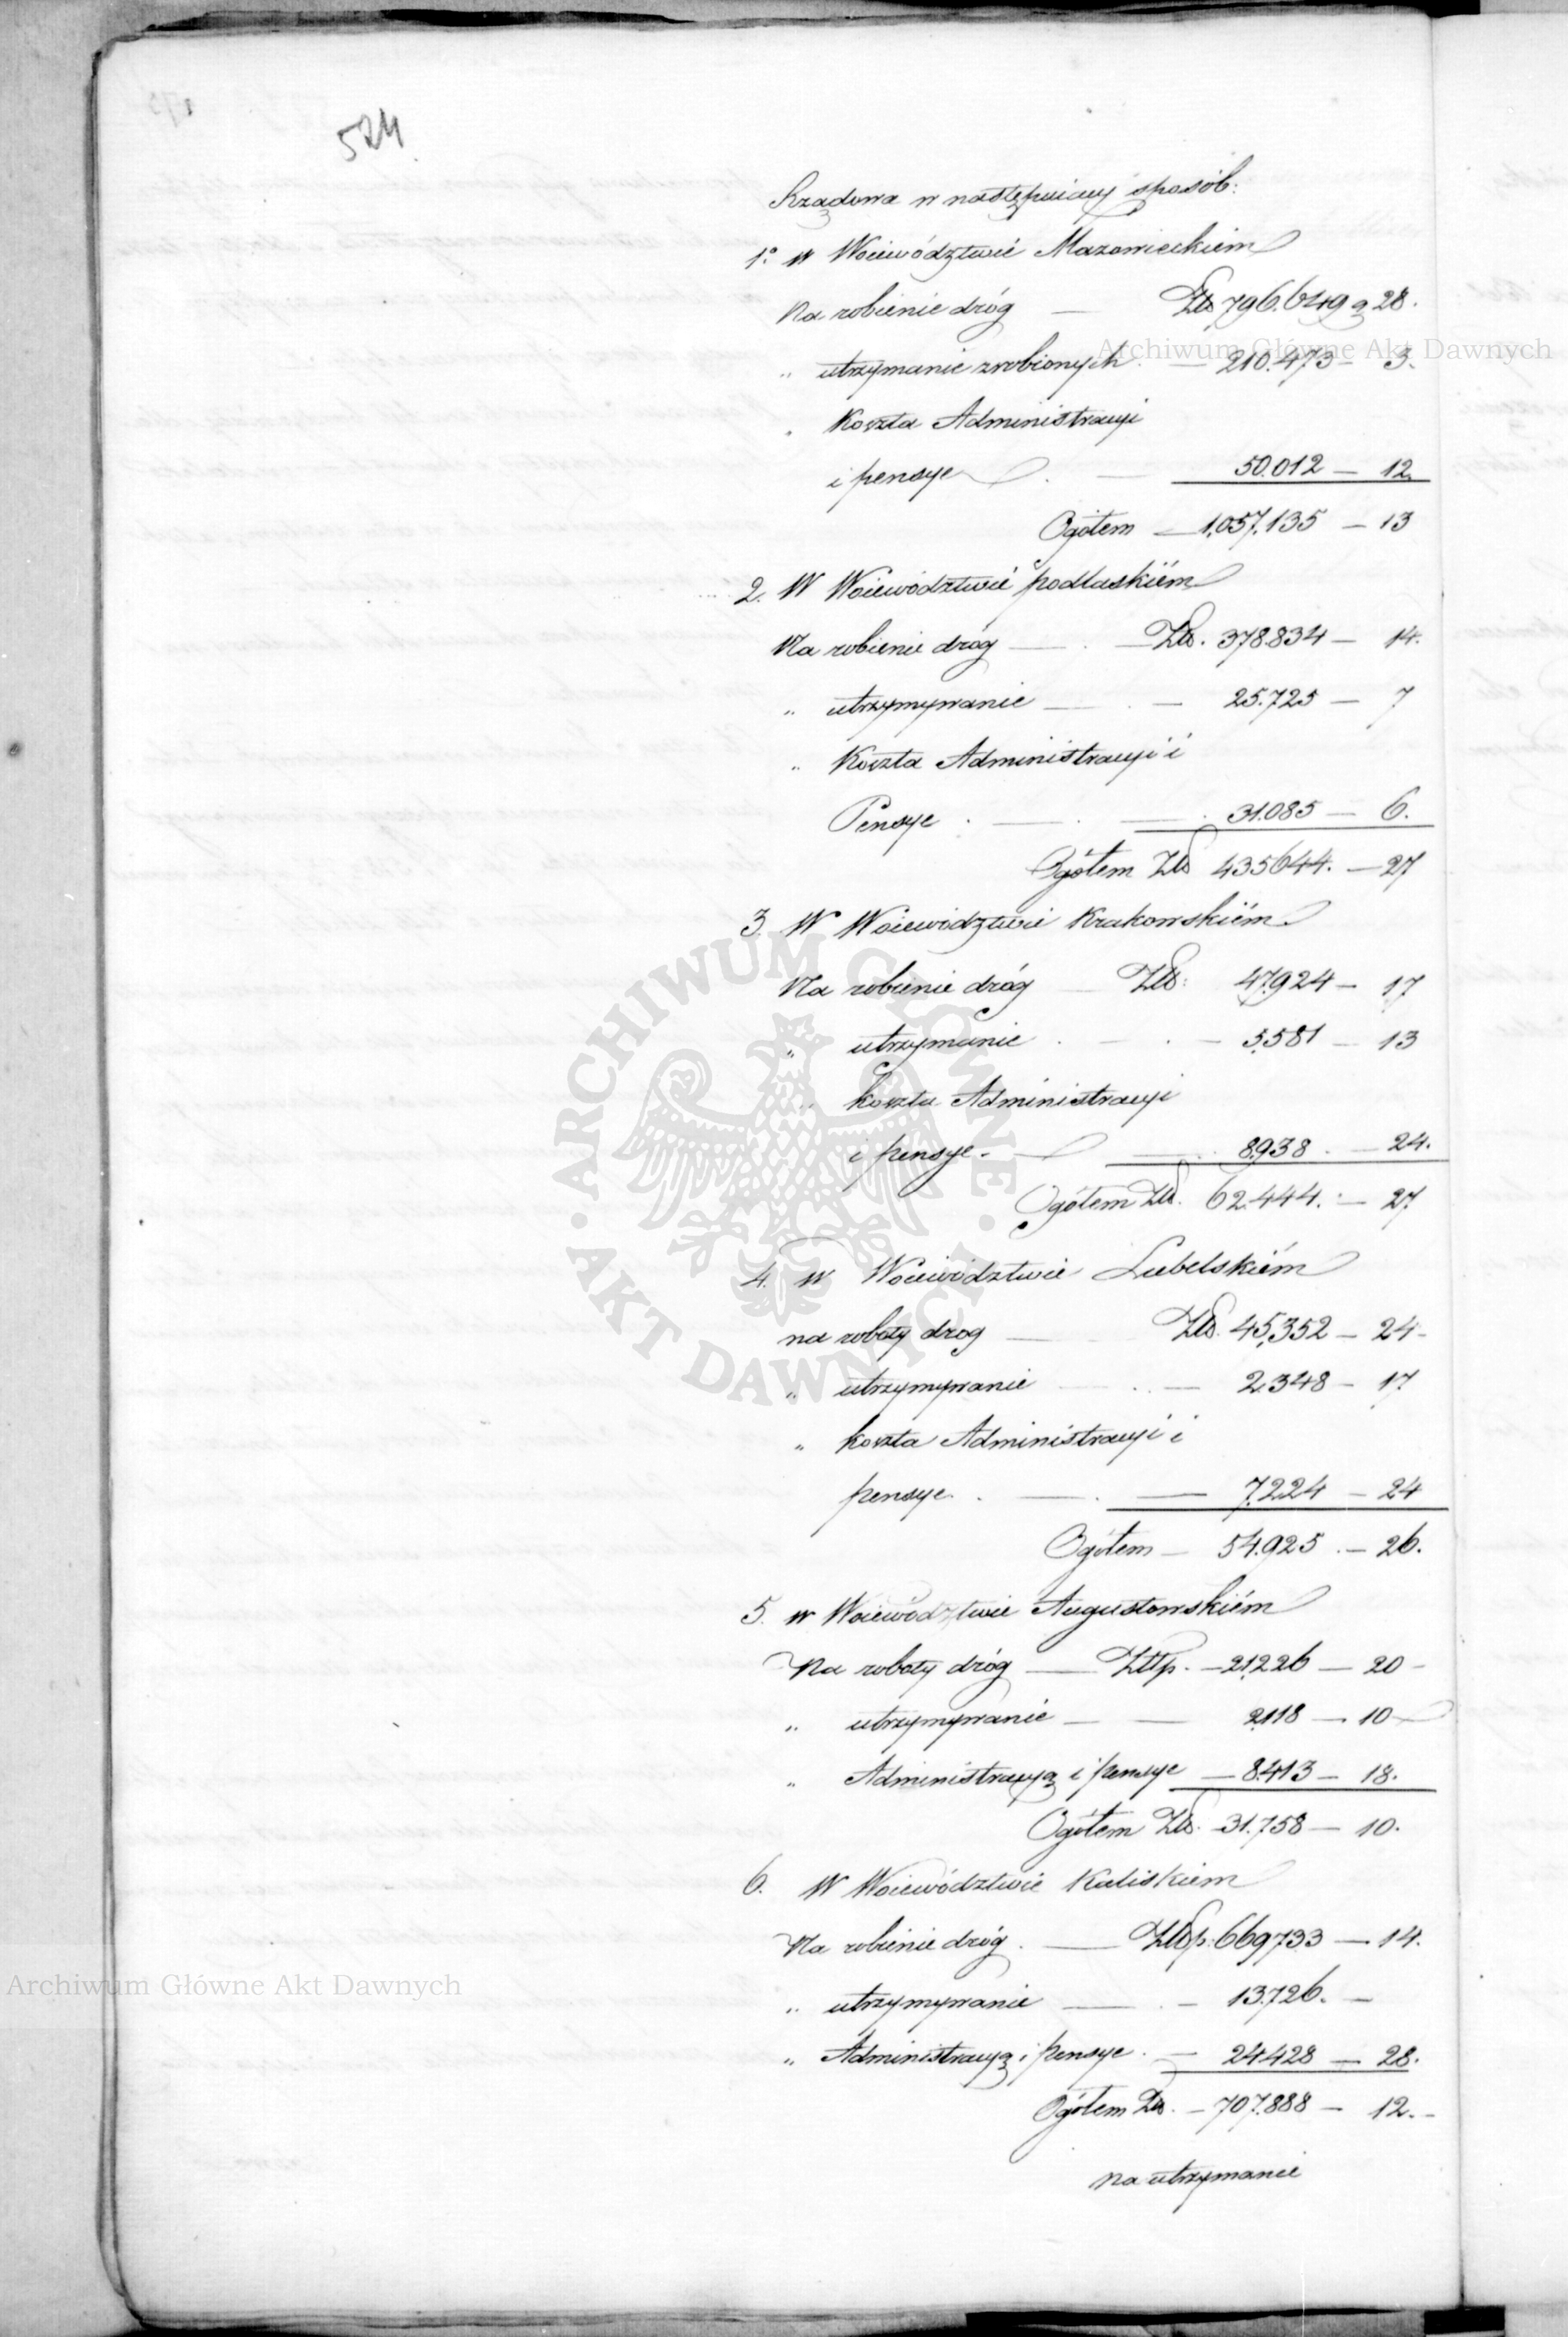 524
Rządowa w następuiący sposób:
1º w Woiewództwie Mazowieckiem
Na robienie dróg — Złt. 796.649 g 28.
" utrzymanie zrobionych. — 210.473 — 3.
" Koszta Administracyi
i pensye . — 50.012 — 12.
Ogółem — 1,057.135 — 13
2. W Woiewództwie podlaskiém
Na robienie dróg — . — Złt. 378.834 — 14.
" utrzymywanie — . — 25.725 — 7
" Koszta Administracyi i
Pensye . — . — . 31.085 — 6.
Ogółem Złt 435644. — 27
3. W Woiewództwie Krakowskiém
Na robienie dróg — Złt: 47.924 — 17
" utrzymanie . — . — 5,581 — 13
" koszta Administracyi
i pensye. — . 8938 . — 24.
Ogółem Złt. 62.444. — 27
4. w Woiewództwie Lubelskiém
na roboty drog — Złt. 45,352 — 24 —
" utrzymywanie . . — 2.348 — 17
" koszta Administracyi i
pensye. . — . — 7.224 — 24
Ogółem — 54.925 . — 26.
5. w Woiewództwie Augustowskiém
Na roboty dróg — Złtp. — 21,226 — 20 —
" utrzymywanie — — 2,118 — 10
" Administracyą i pensye — 8.413 — 18.
Ogółem Złt. — 31.758 — 10.
6. W Woiewództwie Kaliskiem
Na robienie dróg . — Złtp. 669733 — 14.
" utrzymywanie — . — 13.726. —
" Administracyą i pensye. — 24428 — 28.
Ogółem Złt. — 707.888 — 12. —
na utrzymanie
Archiwum Główne Akt Dawnych
ARCHIWUM GŁÓWNE · AKT DAWNYCH ·
Archiwum Główne Akt Dawnych